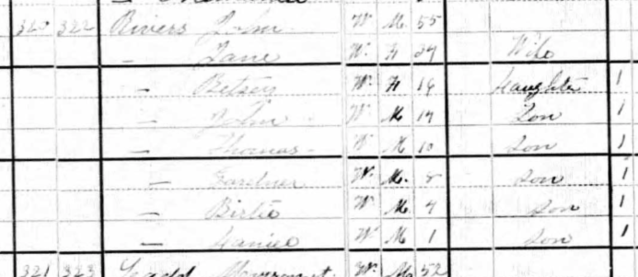 320 322 Rivers John W. M. 55
— Jane W. F 29 Wife
— Betsey W. F 16 Daughter 1
— John W. M. 14 Son 1
— Thomas W M 10 Son 1
— Gardner W. M. 8 Son 1
— Birtie W M. 4 Son 1
— W M 1 Son 1
321 323 W. M. 52